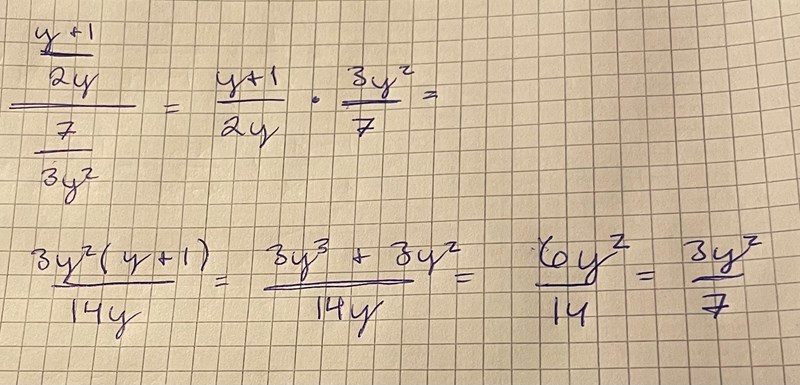 \frac{\frac{y+1}{2y}}{\frac{7}{3y²}} = \frac{y+1}{2y} · \frac{3y²}{7} =
\frac{3y²(y+1)}{14y} = \frac{3y³ + 3y²}{14y} = \frac{6y²}{14} = \frac{3y²}{7}